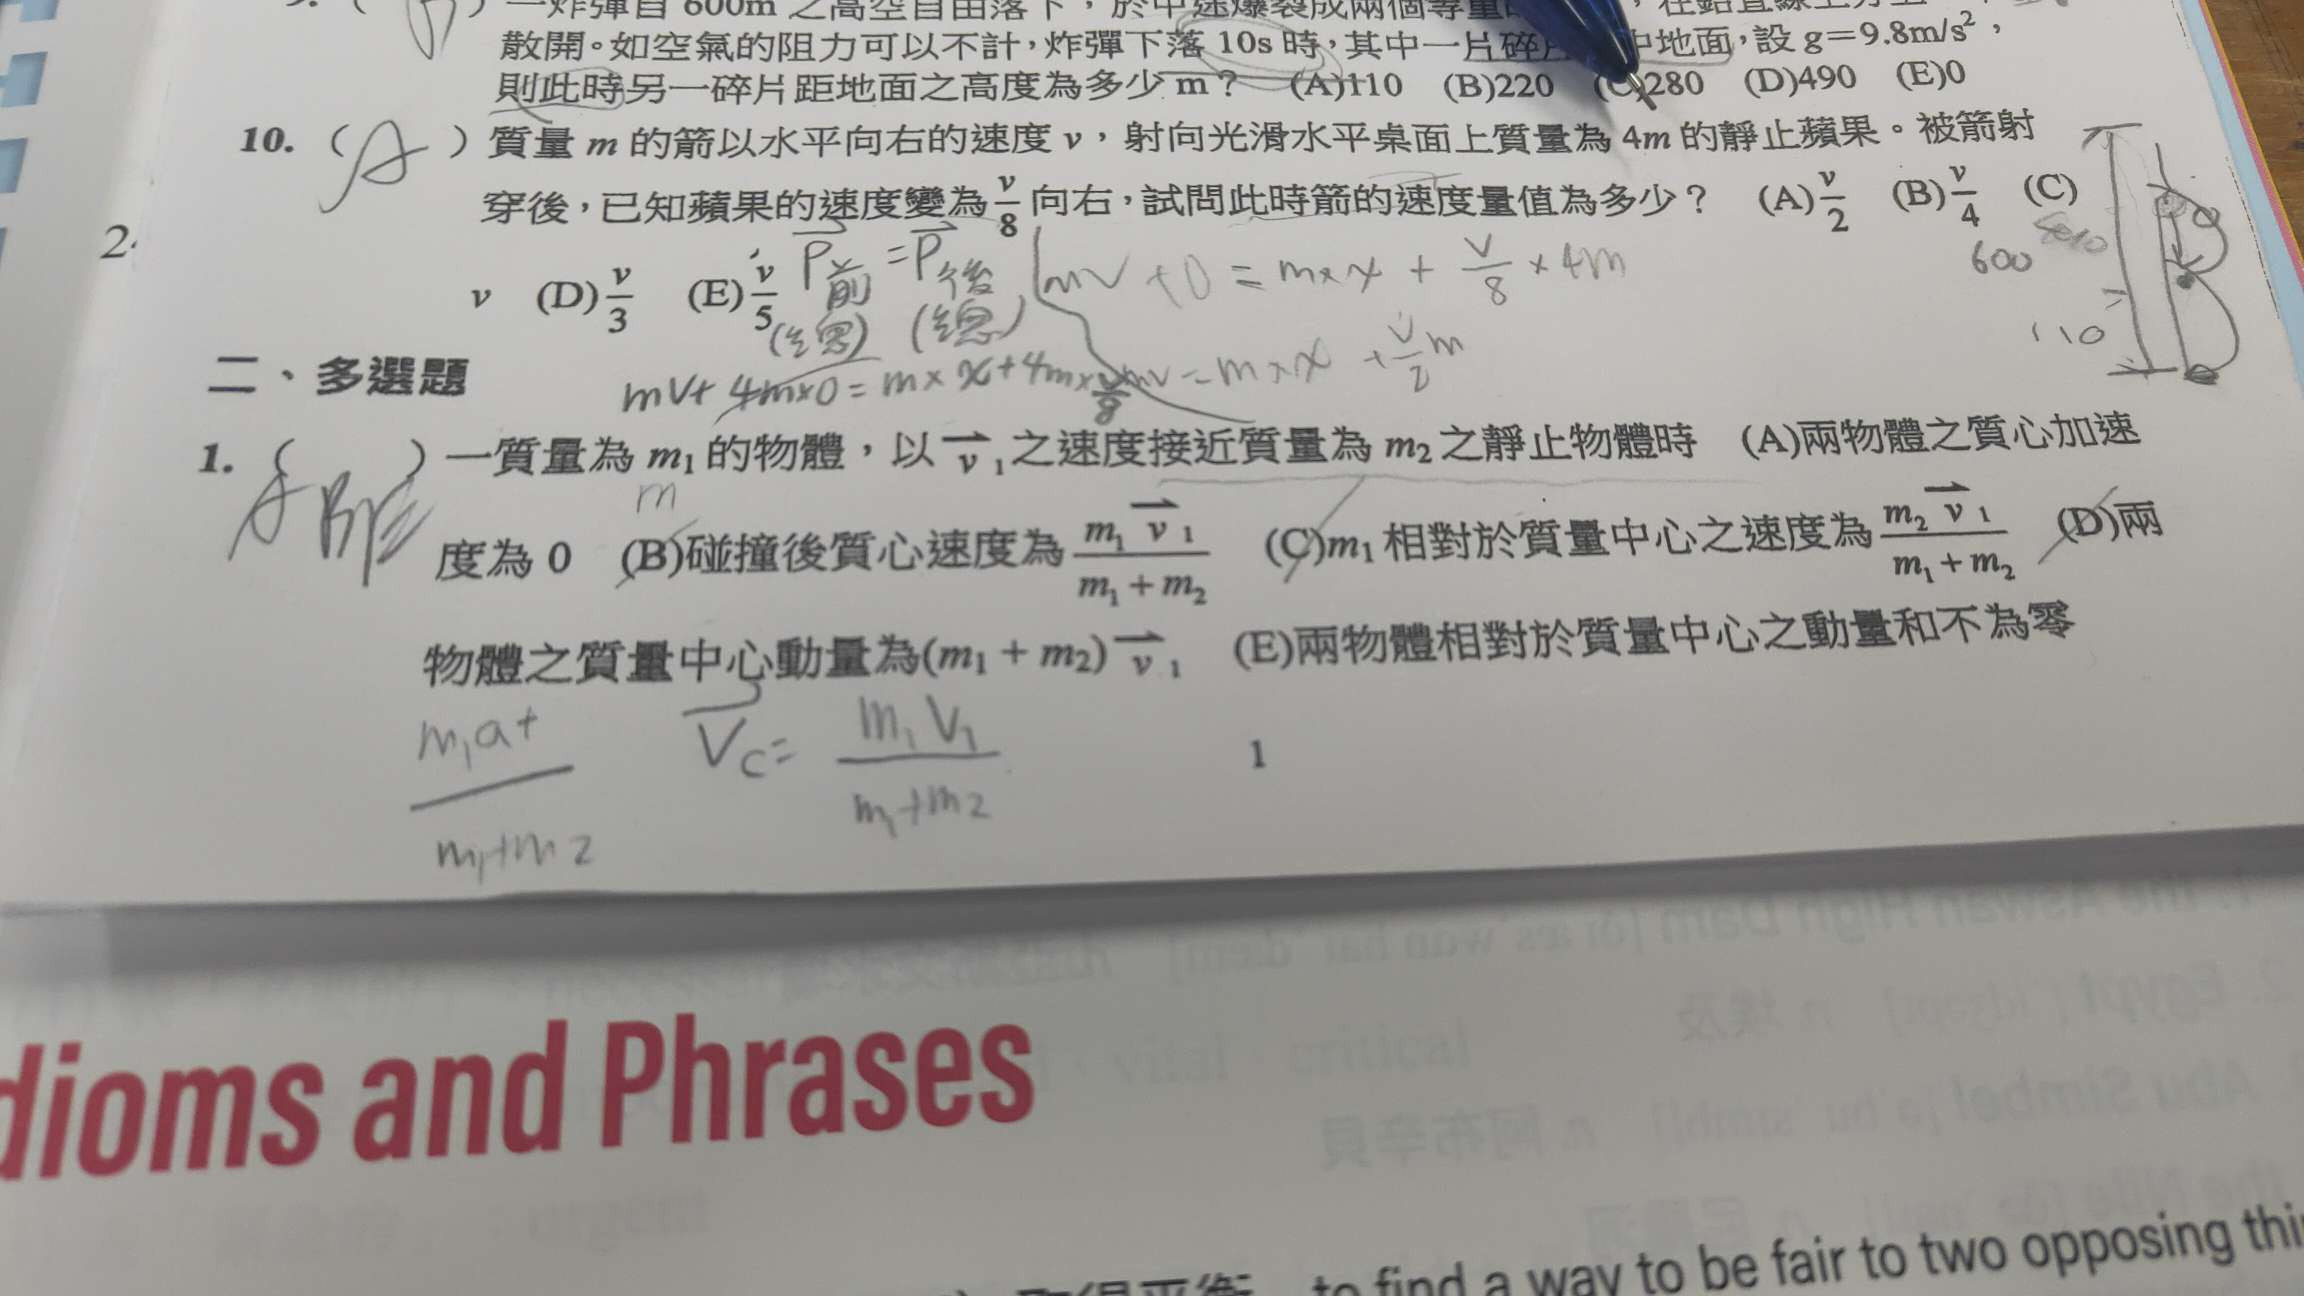 一炸彈自 600m 之高空自由落下，於中途爆裂成兩個等量的
散開。如空氣的阻力可以不計，炸彈下落 10s 時，其中一片碎片 中地面，設 g＝9.8m/s²，
則此時另一碎片距地面之高度為多少 m？ (A)110 (B)220 (C)280 (D)490 (E)0
10. ( A ) 質量 m 的箭以水平向右的速度 v，射向光滑水平桌面上質量為 4m 的靜止蘋果。被箭射
穿後，已知蘋果的速度變為 v/8 向右，試問此時箭的速度量值為多少？ (A) v/2 (B) v/4 (C)
2.
v (D) v/3 (E) v/5
P前 = P後
(總) (總)
mv + 0 = m×x + v/8 × 4m
600
110
mv + 4m×0 = m×x + 4m× v/8
mv = m×x + v/2 m
二、多選題
1. ( ) 一質量為 m₁ 的物體，以 v⃗₁ 之速度接近質量為 m₂ 之靜止物體時 (A)兩物體之質心加速
m
度為 0 (B)碰撞後質心速度為 m₁v⃗₁/(m₁＋m₂) (C)m₁ 相對於質量中心之速度為 m₂v⃗₁/(m₁＋m₂) (D)兩
物體之質量中心動量為(m₁＋m₂) v⃗₁ (E)兩物體相對於質量中心之動量和不為零
m₁a+/(m₁+m₂) V⃗c = m₁V₁/(m₁+m₂)
1
dioms and Phrases
to find a way to be fair to two opposing thi